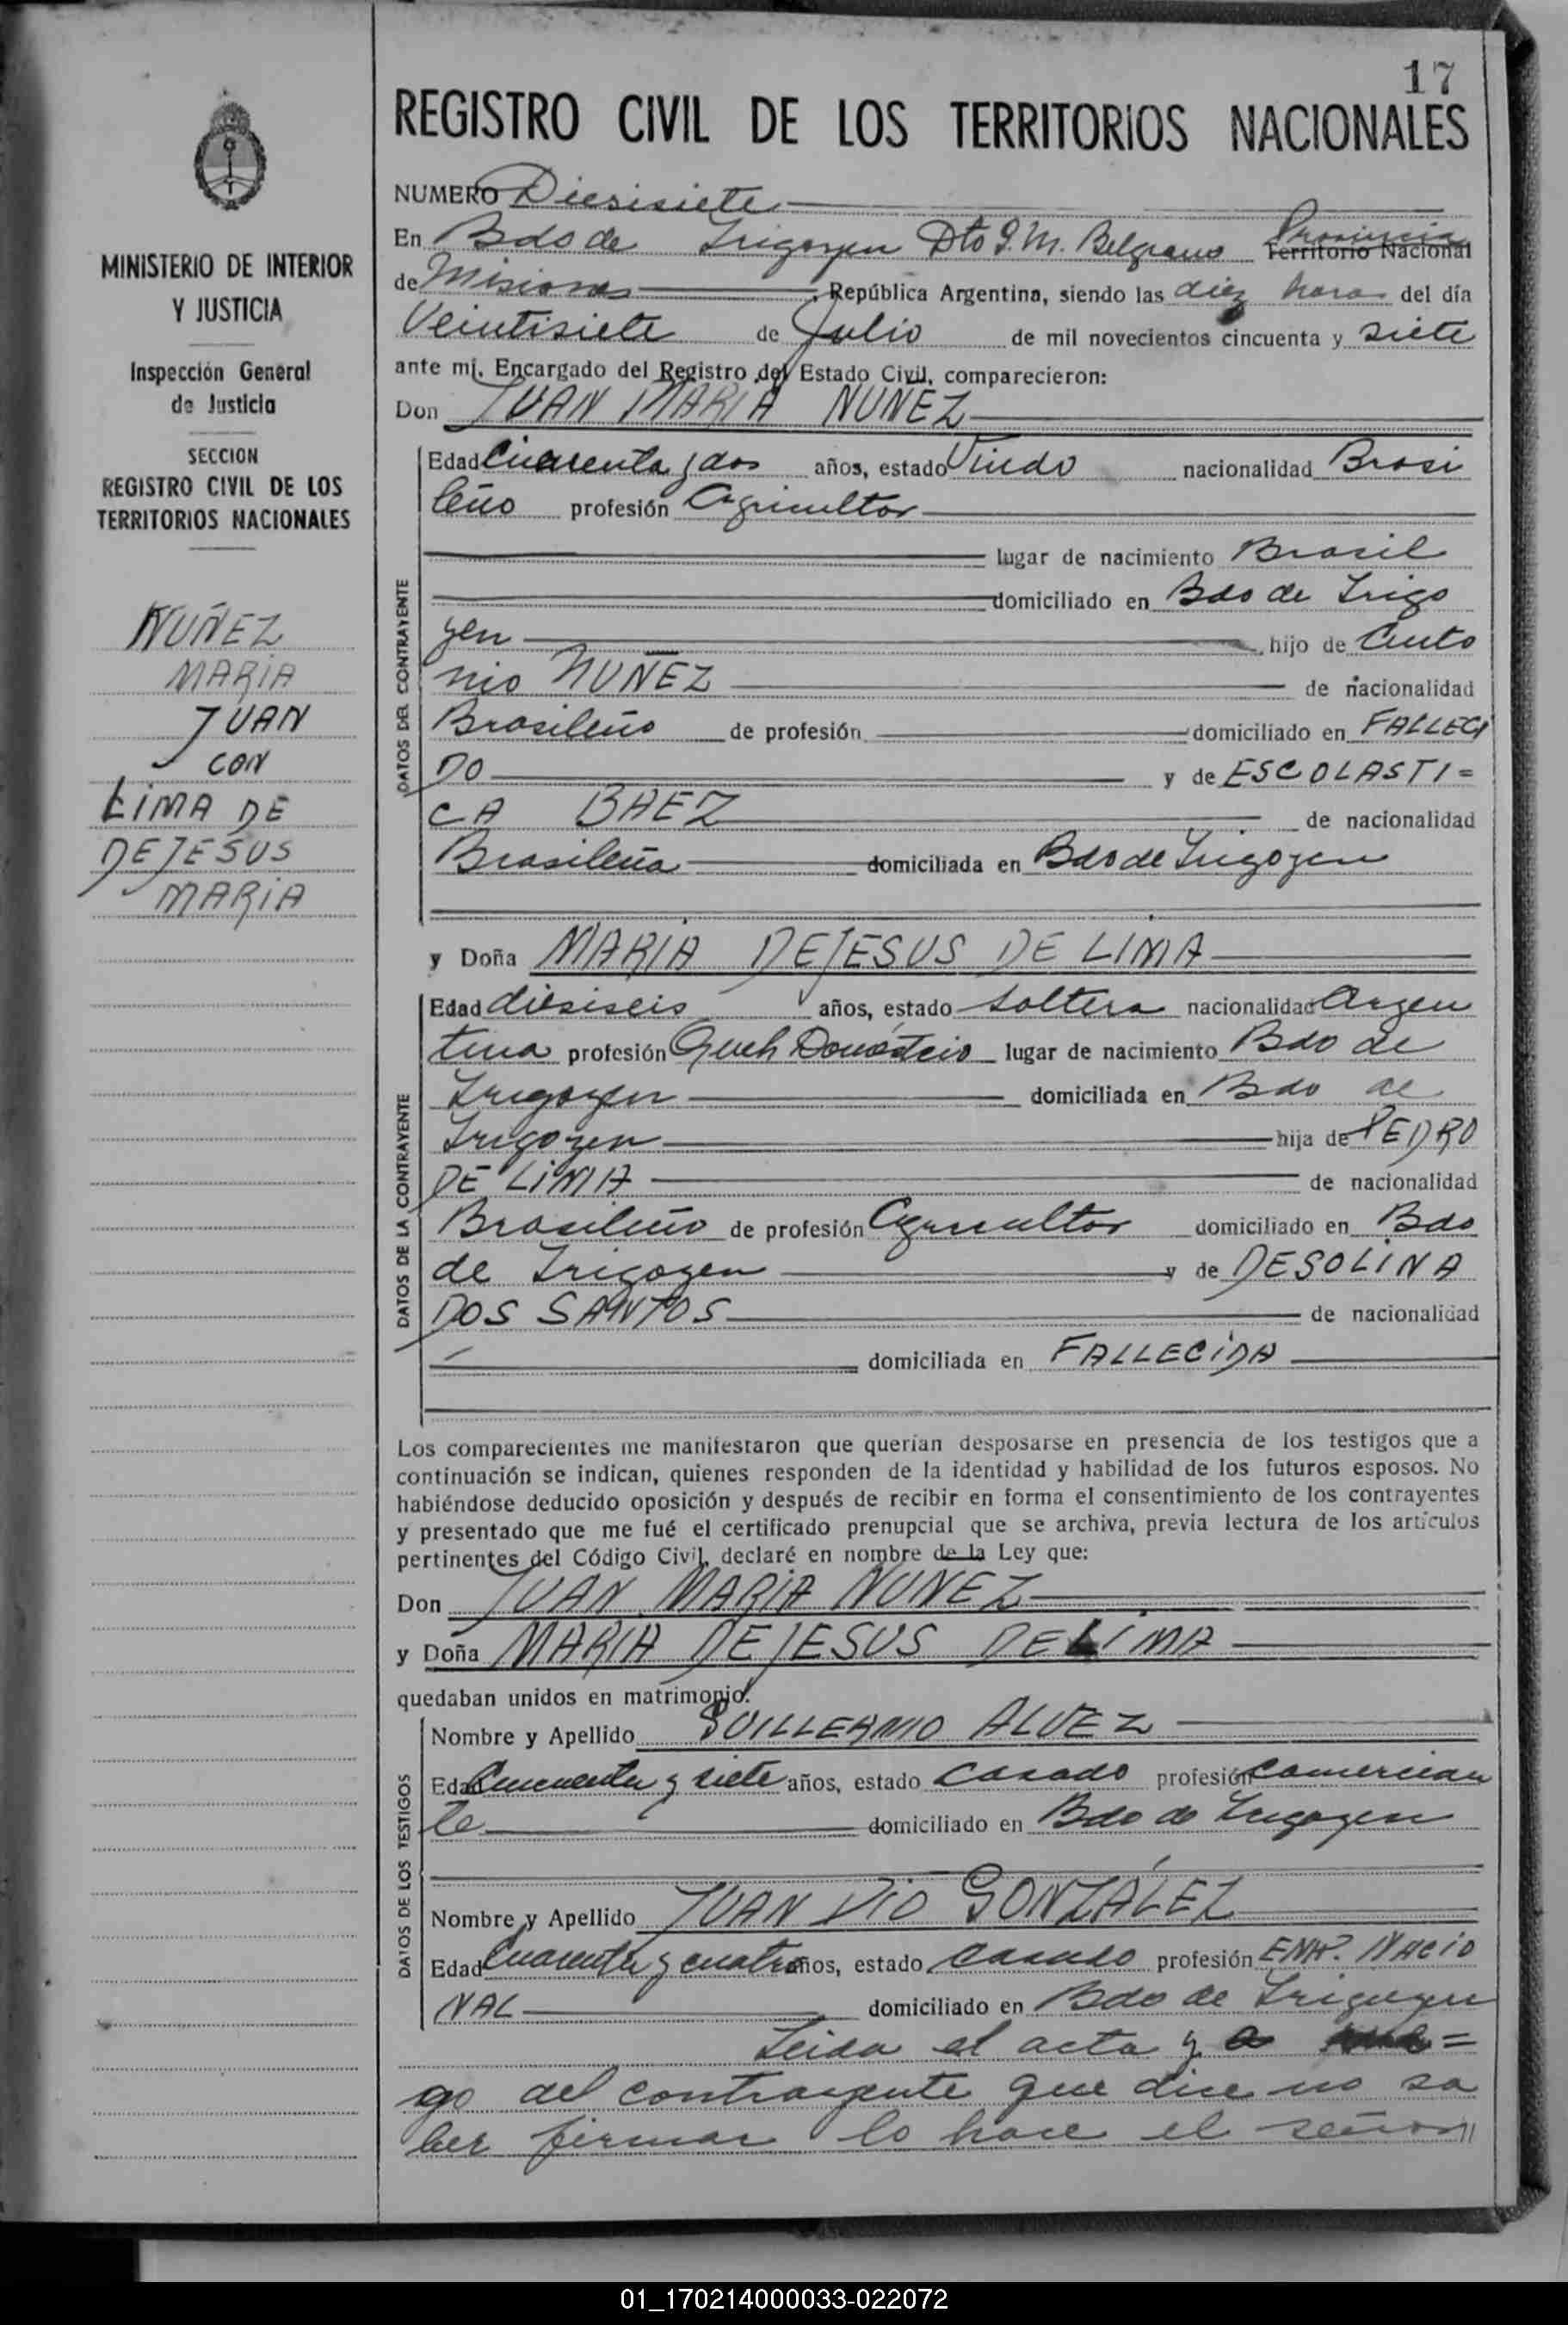 17
REGISTRO CIVIL DE LOS TERRITORIOS NACIONALES
MINISTERIO DE INTERIOR
Y JUSTICIA
Inspección General
de Justicia
SECCION
REGISTRO CIVIL DE LOS
TERRITORIOS NACIONALES
NUÑEZ
MARIA
JUAN
CON
LIMA DE
DEJESUS
MARIA
NUMERO Diesisiete
En Bdo de Irigoyen Dto G. M. Belgrano Provincia Territorio Nacional
de Misiones, República Argentina, siendo las diez horas del día
Veintisiete de Julio de mil novecientos cincuenta y siete
ante mí, Encargado del Registro del Estado Civil, comparecieron:
Don JUAN MARIA NUÑEZ
DATOS DEL CONTRAYENTE
Edad Cuarenta y dos años, estado Viudo nacionalidad Brasi
leño profesión Agricultor
lugar de nacimiento Brasil
domiciliado en Bdo de Irigo
yen hijo de
nio NUÑEZ de nacionalidad
Brasileño de profesión domiciliado en FALLECI
DO y de ESCOLASTI=
CA BAEZ de nacionalidad
Brasileña domiciliada en Bdo de Irigoyen
y Doña MARIA DEJESUS DE LIMA
DATOS DE LA CONTRAYENTE
Edad diesiseis años, estado Soltera nacionalidad Argen
tina profesión Queh Domésticos lugar de nacimiento Bdo de
Irigoyen domiciliada en Bdo de
Irigoyen hija de PEDRO
DE LIMA de nacionalidad
Brasileño de profesión Agricultor domiciliado en Bdo
de Irigoyen y de DESOLINA
DOS SANTOS de nacionalidad
domiciliada en FALLECIDA
Los comparecientes me manifestaron que querían desposarse en presencia de los testigos que a
continuación se indican, quienes responden de la identidad y habilidad de los futuros esposos. No
habiéndose deducido oposición y después de recibir en forma el consentimiento de los contrayentes
y presentado que me fué el certificado prenupcial que se archiva, previa lectura de los artículos
pertinentes del Código Civil, declaré en nombre de la Ley que:
Don JUAN MARIA NUNEZ
y Doña MARIA DEJESUS DE LIMA
quedaban unidos en matrimonio.
DATOS DE LOS TESTIGOS
Nombre y Apellido GUILLERMO ALVEZ
Edad Cincuenta y siete años, estado Casado profesión Comercian
te domiciliado en Bdo de Irigoyen
Nombre y Apellido JUAN DIO GONZALEZ
Edad Cuarenta y cuatro años, estado Casado profesión EMP. NACIO
NAL domiciliado en Bdo de Irigoyen
Leida el acta y a =
go del contrayente que dice no sa
ber firmar lo hace el señor
01_170214000033-022072